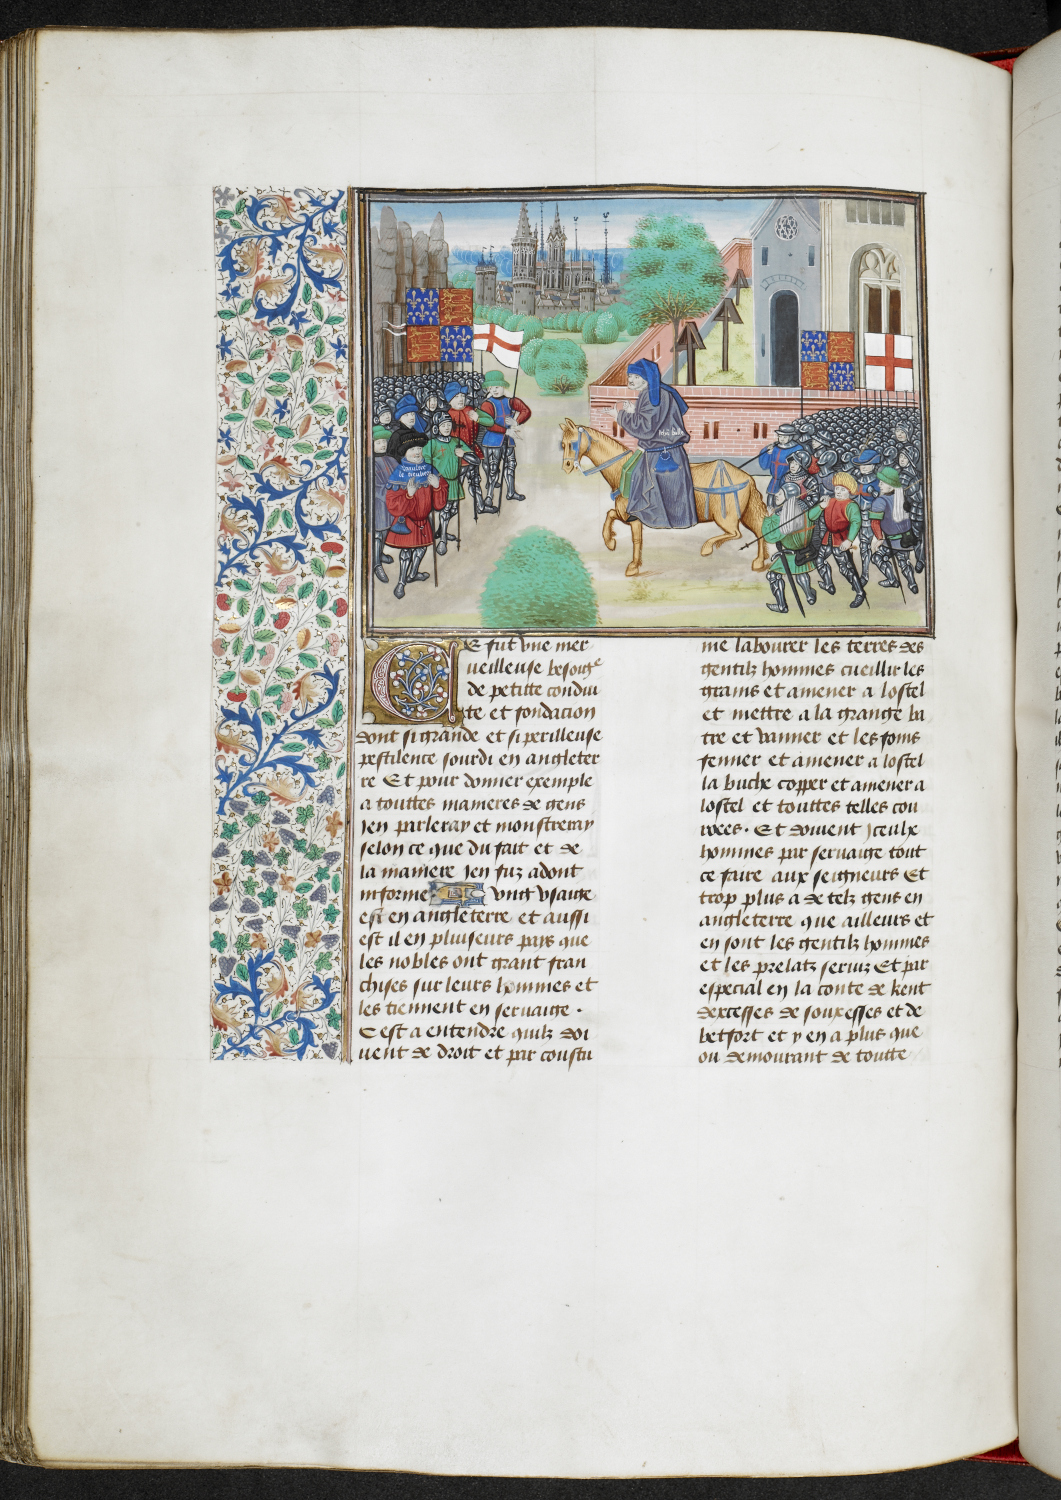 waultre
le tieulier
Jehã balle
Ce fut vne mer
ueilleuse besong͛e
de petitte condui
tte et fondacion
dont si grande et si perilleuse
pestilence sourdi en angleter
re Et pour donner exemple
a touttes manieres de gens
Jen parleray et monstreray
selon ce que du fait et de
la maniere Jen fuz adont
informe vng vsaige
est en angleterre et aussi
est il en pluiseurs pays que
les nobles ont grant fran
chises sur leurs hommes et
les tiennent en seruaige .
C est a entendre quilz doi
uent de droit et par constu
me labourer les terres des
gentilz hommes cueillir les
grains et amener a lostel
et mettre a la grange ba
tre et vanner et les foins
fenner et amener a lostel
la buche copper et amener a
lostel et touttes telles cou
vees . Et doiuent Jceulx
hommes par seruaige tout
ce faire aux seigneurs Et
trop plus a de telz gens en
angleterre que ailleurs et
en sont les gentilz hommes
et les prelatz seruiz Et par
especial en la conte de kent
dexcesses de souxesses et de
betfort et y en a plus que
ou demourant de toutte